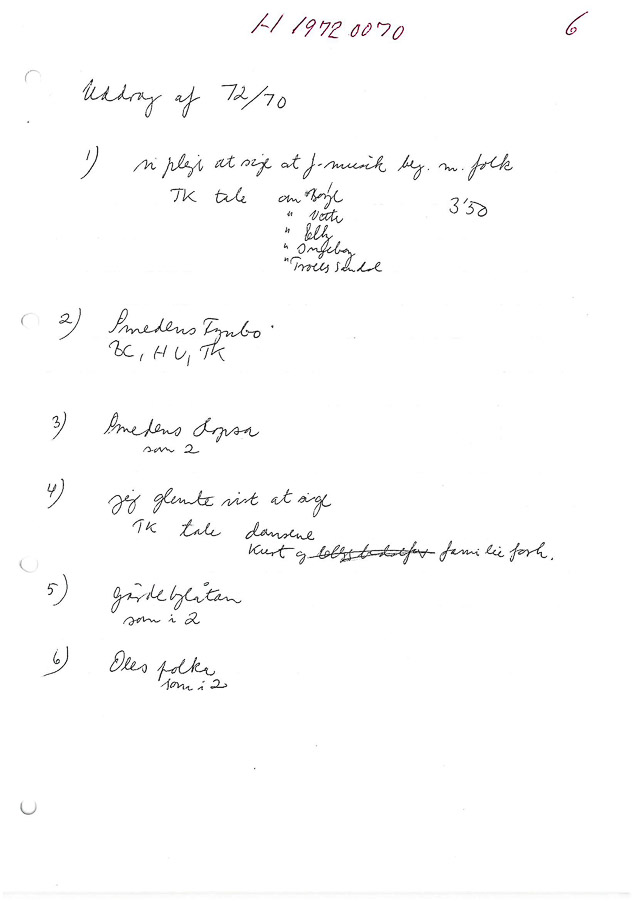 H 1972 0070 6
Uddrag af 72/70
1) vi plejr at sige at f-musik beg. m. folk
TK tale om Børge 3'50
" 
" Elly
" Ingeborg
" Troels Sandal
2) Smedens Fynbo
BC, HU, TK
3) Smedens Hopsa
som 2
4) jeg glemte vist at sige
TK tale dansene
Kurt og familie forh.
5) Gärdebylåtan
som i 2
6) Oles polka
som i 2